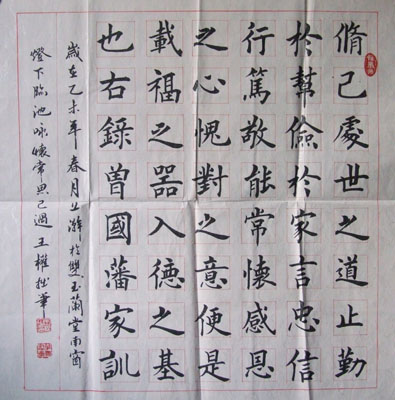 脩己處世之道止勤
於幫儉於家言忠信
行篤敬能常懷感恩
之心愧對之意便是
載福之器入德之基
也右錄曾國藩家訓
歲在乙未年春月上澣於雙玉蘭堂南窗
燈下臨池咏懷常思己過王權拙筆